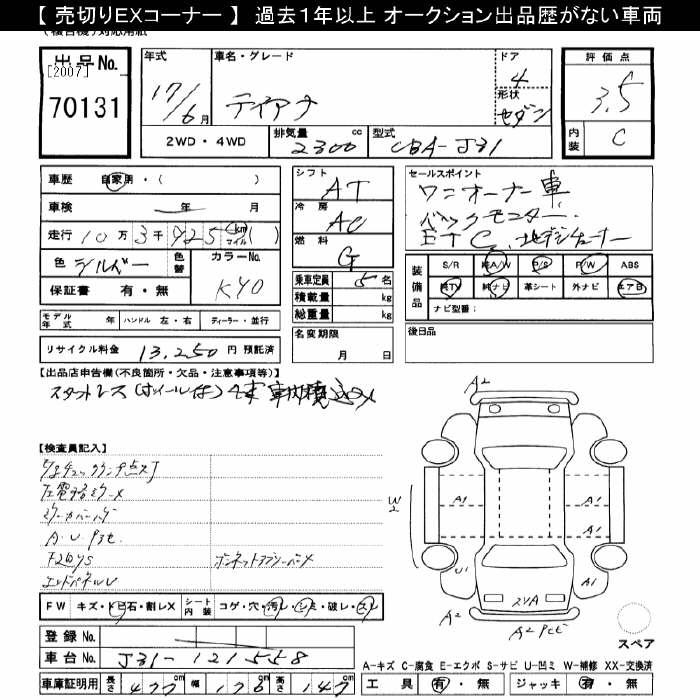 【 売切りEXコーナー 】 過去1年以上 オークション出品歴がない車両
出品No.
[2007]
70131
年式
17/6月
車名・グレード
ティアナ
ドア
4
形状
セダン
評価点
3.5
内装
C
2WD・4WD
排気量 2300 cc
型式 CBA-J31
車歴 自家用・( )
車検 年 月
走行 10万3千925 km マイル ( )
色 シルバー
色替
カラーNo.
KY0
保証書 有・無
モデル年式 年
ハンドル 左・右
ディーラー・並行
リサイクル料金 13,250 円 預託済
シフト
AT
冷房
AC
燃料
G
乗車定員 5 名
積載量 kg
総重量 kg
名変期限
月 日
セールスポイント
ワンオーナー車
バックモニター.
ETC、地デジチューナー
装備品
S/R 純A/W P/S P/W ABS
純TV 純ナビ 革シート 外ナビ エアB
ナビ型番:
後日品
【出品店申告欄(不良箇所・欠品・注意事項等)】
スタットレス(ホイール付)4本 車内積込み
【検査員記入】
A
2
A1
A1
A1
W2
U1
A1
A2
A2
FW キズ・トビ石・割レX
シート内装 コゲ・穴・汚レ・シミ・破レ・スレ
登録No.
車台No. J31-121558
車庫証明用 長さ 477 cm 幅 176 cm 高さ 147 cm
スペア
A-キズ C-腐食 E-エクボ S-サビ U-凹ミ W-補修 XX-交換済
工具 有・無 ジャッキ 有・無